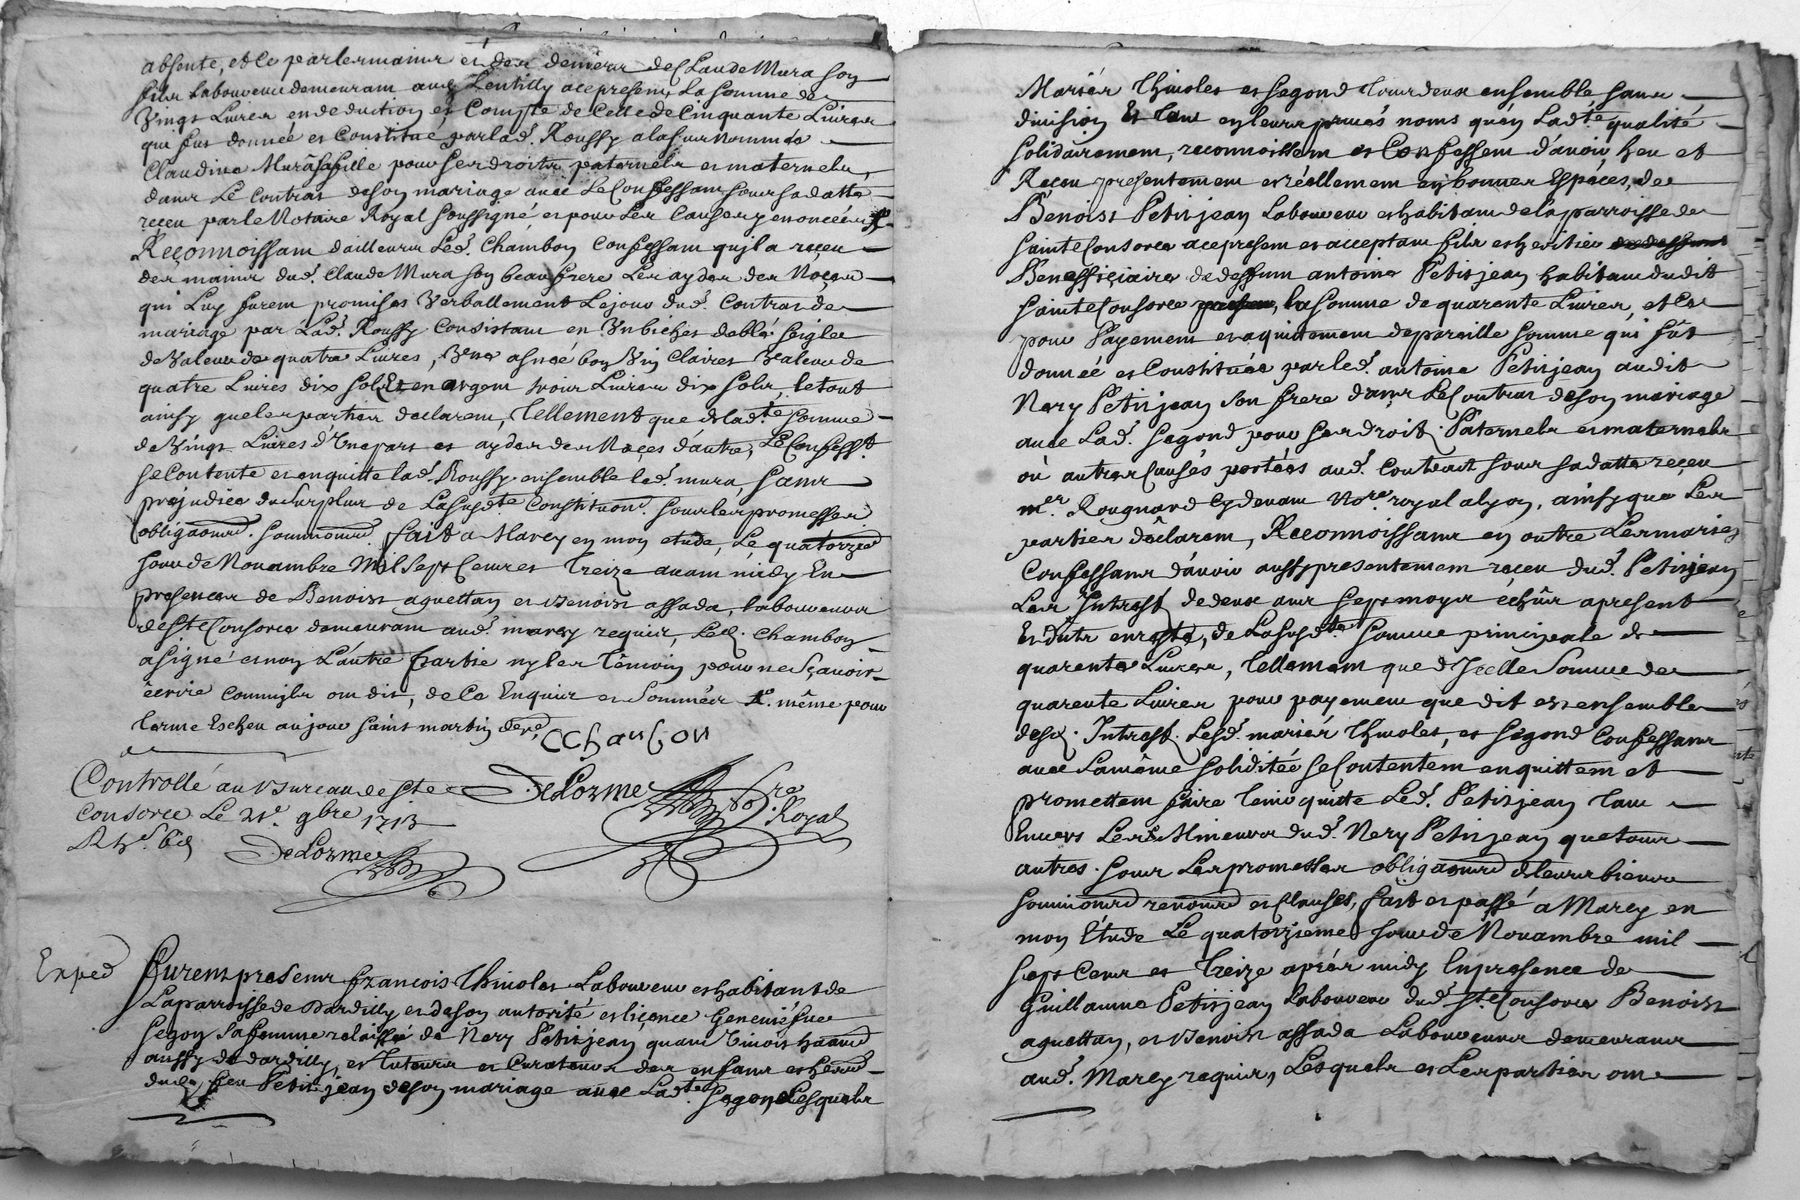 absente, et ce par les mains et des deniers de Claude Mura son
fils Laboureur demeurant aud Lentilly acepresent La somme de
Vingt Livres en deduction et Compte de Celle de Cinquante Livres
qui fut donnée et Constitué par lad. Roussy a la sus nommée
Claudine Mura sa fille pour ses droits paternels et maternels,
dans Le Contrat de son mariage avec Le Confessant sous sa datte
reçeu par le Notaire Royal soussigné et pour Les Causes y enoncées
Reconnoissant d'ailleurs Led. Chambon Confessant qu'il a reçeu
des mains dud. Claude Mura son beau frere Les aydes des Noçes
qui Luy furent promises Verballement Le jour dud. Contrat de
mariage par Lad. Roussy Consistant en Un bichet de blé seigle
de Valeur de quatre Livres, Une asnée bon Vin Clairet Valeur de
quatre Livres dix sols Et en argent trois Livres dix sols, le tout
ainsy que les parties declarent, Tellement que de lad.te somme
de Vingt Livres d'Une part et aydes des Noçes d'autre, Le Confess.t
se Contente et en quitte lad. Roussy ensemble led. mura, sans
prejudice du surplus de La susd.te Constituon. sous les promesses
obligaons. soumions. fait a Marcy en mon etude, Le quatorze
jour de Novembre Mil Sept Cents et Treize avant midy En
presences de Benoist aguettan et Benoist assada, laboureurs
de Ste Consorce demeurant aud. marcy requis, Led. Chambon
a signé et non L'autre partie ny les Témoins pour ne sçavoir
écrire comme ils ont dit, de Ce Enquis et Sommés. même pour
terme Escheu au jour saint martin der.
CChanbon
Controllé au Bureau de Ste
Consorce Le 21e. 9bre 1713
DeLorme
Re. Royal
DeLorme
Exped
Furent presents françois Thivolet Laboureur et habitant de
La parroisse de Dardilly et de son autorité et liçence Genevieve
Segon Sa femme relaissée de Nery Petitjean quand vivoit
aussy de dardilly, et Tuteurs et Curateurs des enfans et
dud. feu Petitjean de son mariage avec Lad.te Segon, Lesquels
Mariés Thivolet et Segond Tous deux ensemble sans
division Et tant en leurs privés noms qu'en Lad.te qualité
Solidairement, reconnoissent et Confessent d'avoir heu et
Reçeu presentement et réellement en bonnes Espèces, de
Benoist Petitjean Laboureur et habitant de la parroisse de
Sainte Consorce acepresent et acceptant fils et heritier
Benefficiaire de deffunt antoine Petitjean habitant dudit
Sainte Consorce la somme de quarente Livres, et Ce
pour Payement et aquittement de pareille somme qui fût
donnée et Constituée par led. antoine Petitjean audit
Nery Petitjean son frere dans Le Contrat de son mariage
avec Lad. Segond pour ses droits Paternels et maternels
où autres Causes portées aud. Contract sous sa datte reçeu
m.er Rougnard Cydevant No.re royal a lyon, ainsy que Les
parties déclarent, Reconnoissants en outre Les mariez
Confessants d'avoir aussy presentement reçeu dud. Petitjean
Les Jntrest de deux ans sept moys échûs apresent
Et duts en reste, de La susd.te somme principale de
quarente Livres, Tellement que d'Jcelle Somme de
quarente Livres pour payement que dit est ensemble
desd. Jntrest. Lesd. mariés Thivolet, et Segond Confessants
avec La même soliditée se Contentent en quittent et
promettent faire Tenir quitte Led. Petitjean Tant
Envers Les Mineurs dud. Nery Petitjean que tous
autres. sous Les promesses obligaons de leurs biens
soumions renons et Clauses, fait et passé a Marcy en
mon Étude Le quatorzieme jour de Novembre mil
sept Cents et Treize aprés midy En presence de
Guillaume Petitjean Laboureur dud. Ste Consorce Benoist
aguettan, et Benoist assada Laboureurs demeurants
aud. Marcy requis, Lesquels et Les parties ont